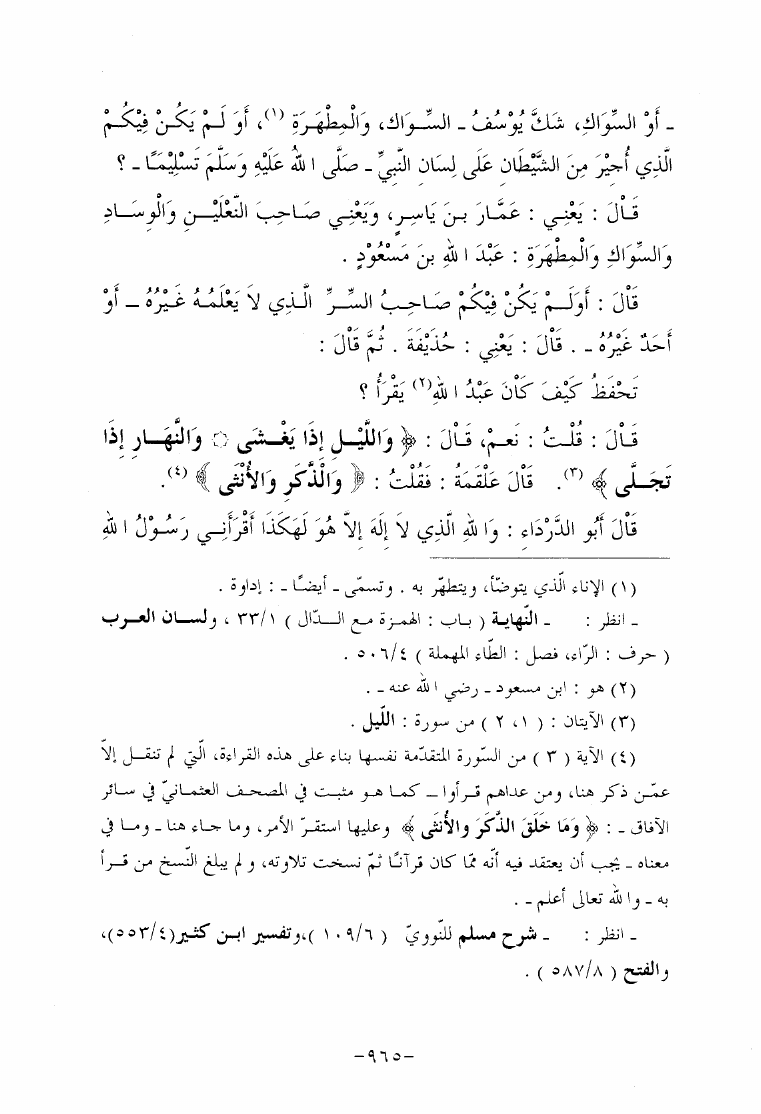 ـ أَوْ السِّوَاكِ، شَكَّ يُوْسُفُ ـ السِّوَاك، وَالْمِطْهَرَةِ (١)، أَوَ لَمْ يَكُنْ فِيْكُمْ
الَّذِي أُجِيْرَ مِنَ الشَّيْطَانِ عَلَى لِسَانِ النَّبِيِّ ـ صَلَّى اللهُ عَلَيْهِ وَسَلَّمَ تَسْلِيْمًا ـ ؟
قَالَ : يَعْنِي : عَمَّارَ بنَ يَاسِرٍ، وَيَعْنِي صَاحِبَ النَّعْلَيْنِ وَالْوِسَادِ
وَالسِّوَاكِ وَالْمِطْهَرَةِ : عَبْدَ اللهِ بنَ مَسْعُوْدٍ .
قَالَ : أَوَلَمْ يَكُنْ فِيْكُمْ صَاحِبُ السِّرِّ الَّذِي لاَ يَعْلَمُهُ غَيْرُهُ ـ أَوْ
أَحَدٌ غَيْرُهُ ـ . قَالَ : يَعْنِي : حُذَيْفَةَ . ثُمَّ قَالَ :
تَحْفَظُ كَيْفَ كَانَ عَبْدُ اللهِ(٢) يَقْرَأُ ؟
قَالَ : قُلْتُ : نَعَمْ، قَالَ : ﴿ وَاللَّيْلِ إِذَا يَغْشَى ۞ وَالنَّهَارِ إِذَا
تَجَلَّى ﴾ (٣). قَالَ عَلْقَمَةُ : فَقُلْتُ : ﴿ وَالذَّكَرِ وَالأُنْثَى ﴾ (٤).
قَالَ أَبُو الدَّرْدَاءِ : وَاللهِ الَّذِي لاَ إِلَهَ إِلاَّ هُوَ لَهَكَذَا أَقْرَأَنِي رَسُوْلُ اللهِ
(١) الإناء الّذي يتوضّأ، ويتطهّر به . وتسمّى ـ أيضًا ـ : إداوة .
ـ انظر : ـ النّهاية ( باب : الهمزة مع الدّال ) ٣٣/١ ، ولسان العرب
( حرف : الرّاء، فصل : الطّاء المهملة ) ٥٠٦/٤ .
(٢) هو : ابن مسعود ـ رضي الله عنه ـ .
(٣) الآيتان : ( ١، ٢ ) من سورة : اللّيل .
(٤) الآية ( ٣ ) من السّورة المتقدّمة نفسها بناء على هذه القراءة، الّتي لم تنقل إلاّ
عمّن ذكر هنا، ومن عداهم قرأوا ـ كما هو مثبت في المصحف العثمانيّ في سائر
الآفاق ـ : ﴿ وَمَا خَلَقَ الذَّكَرَ وَالأُنْثَى ﴾ وعليها استقرّ الأمر، وما جاء هنا ـ وما في
معناه ـ يجب أن يعتقد فيه أنّه ممّا كان قرآنًا ثمّ نسخت تلاوته، ولم يبلغ النّسخ من قرأ
به ـ والله تعالى أعلم ـ .
ـ انظر : ـ شرح مسلم للنّوويّ ( ١٠٩/٦ )،وتفسير ابن كثير(٥٥٣/٤)،
والفتح ( ٥٨٧/٨ ) .
-٩٦٥-